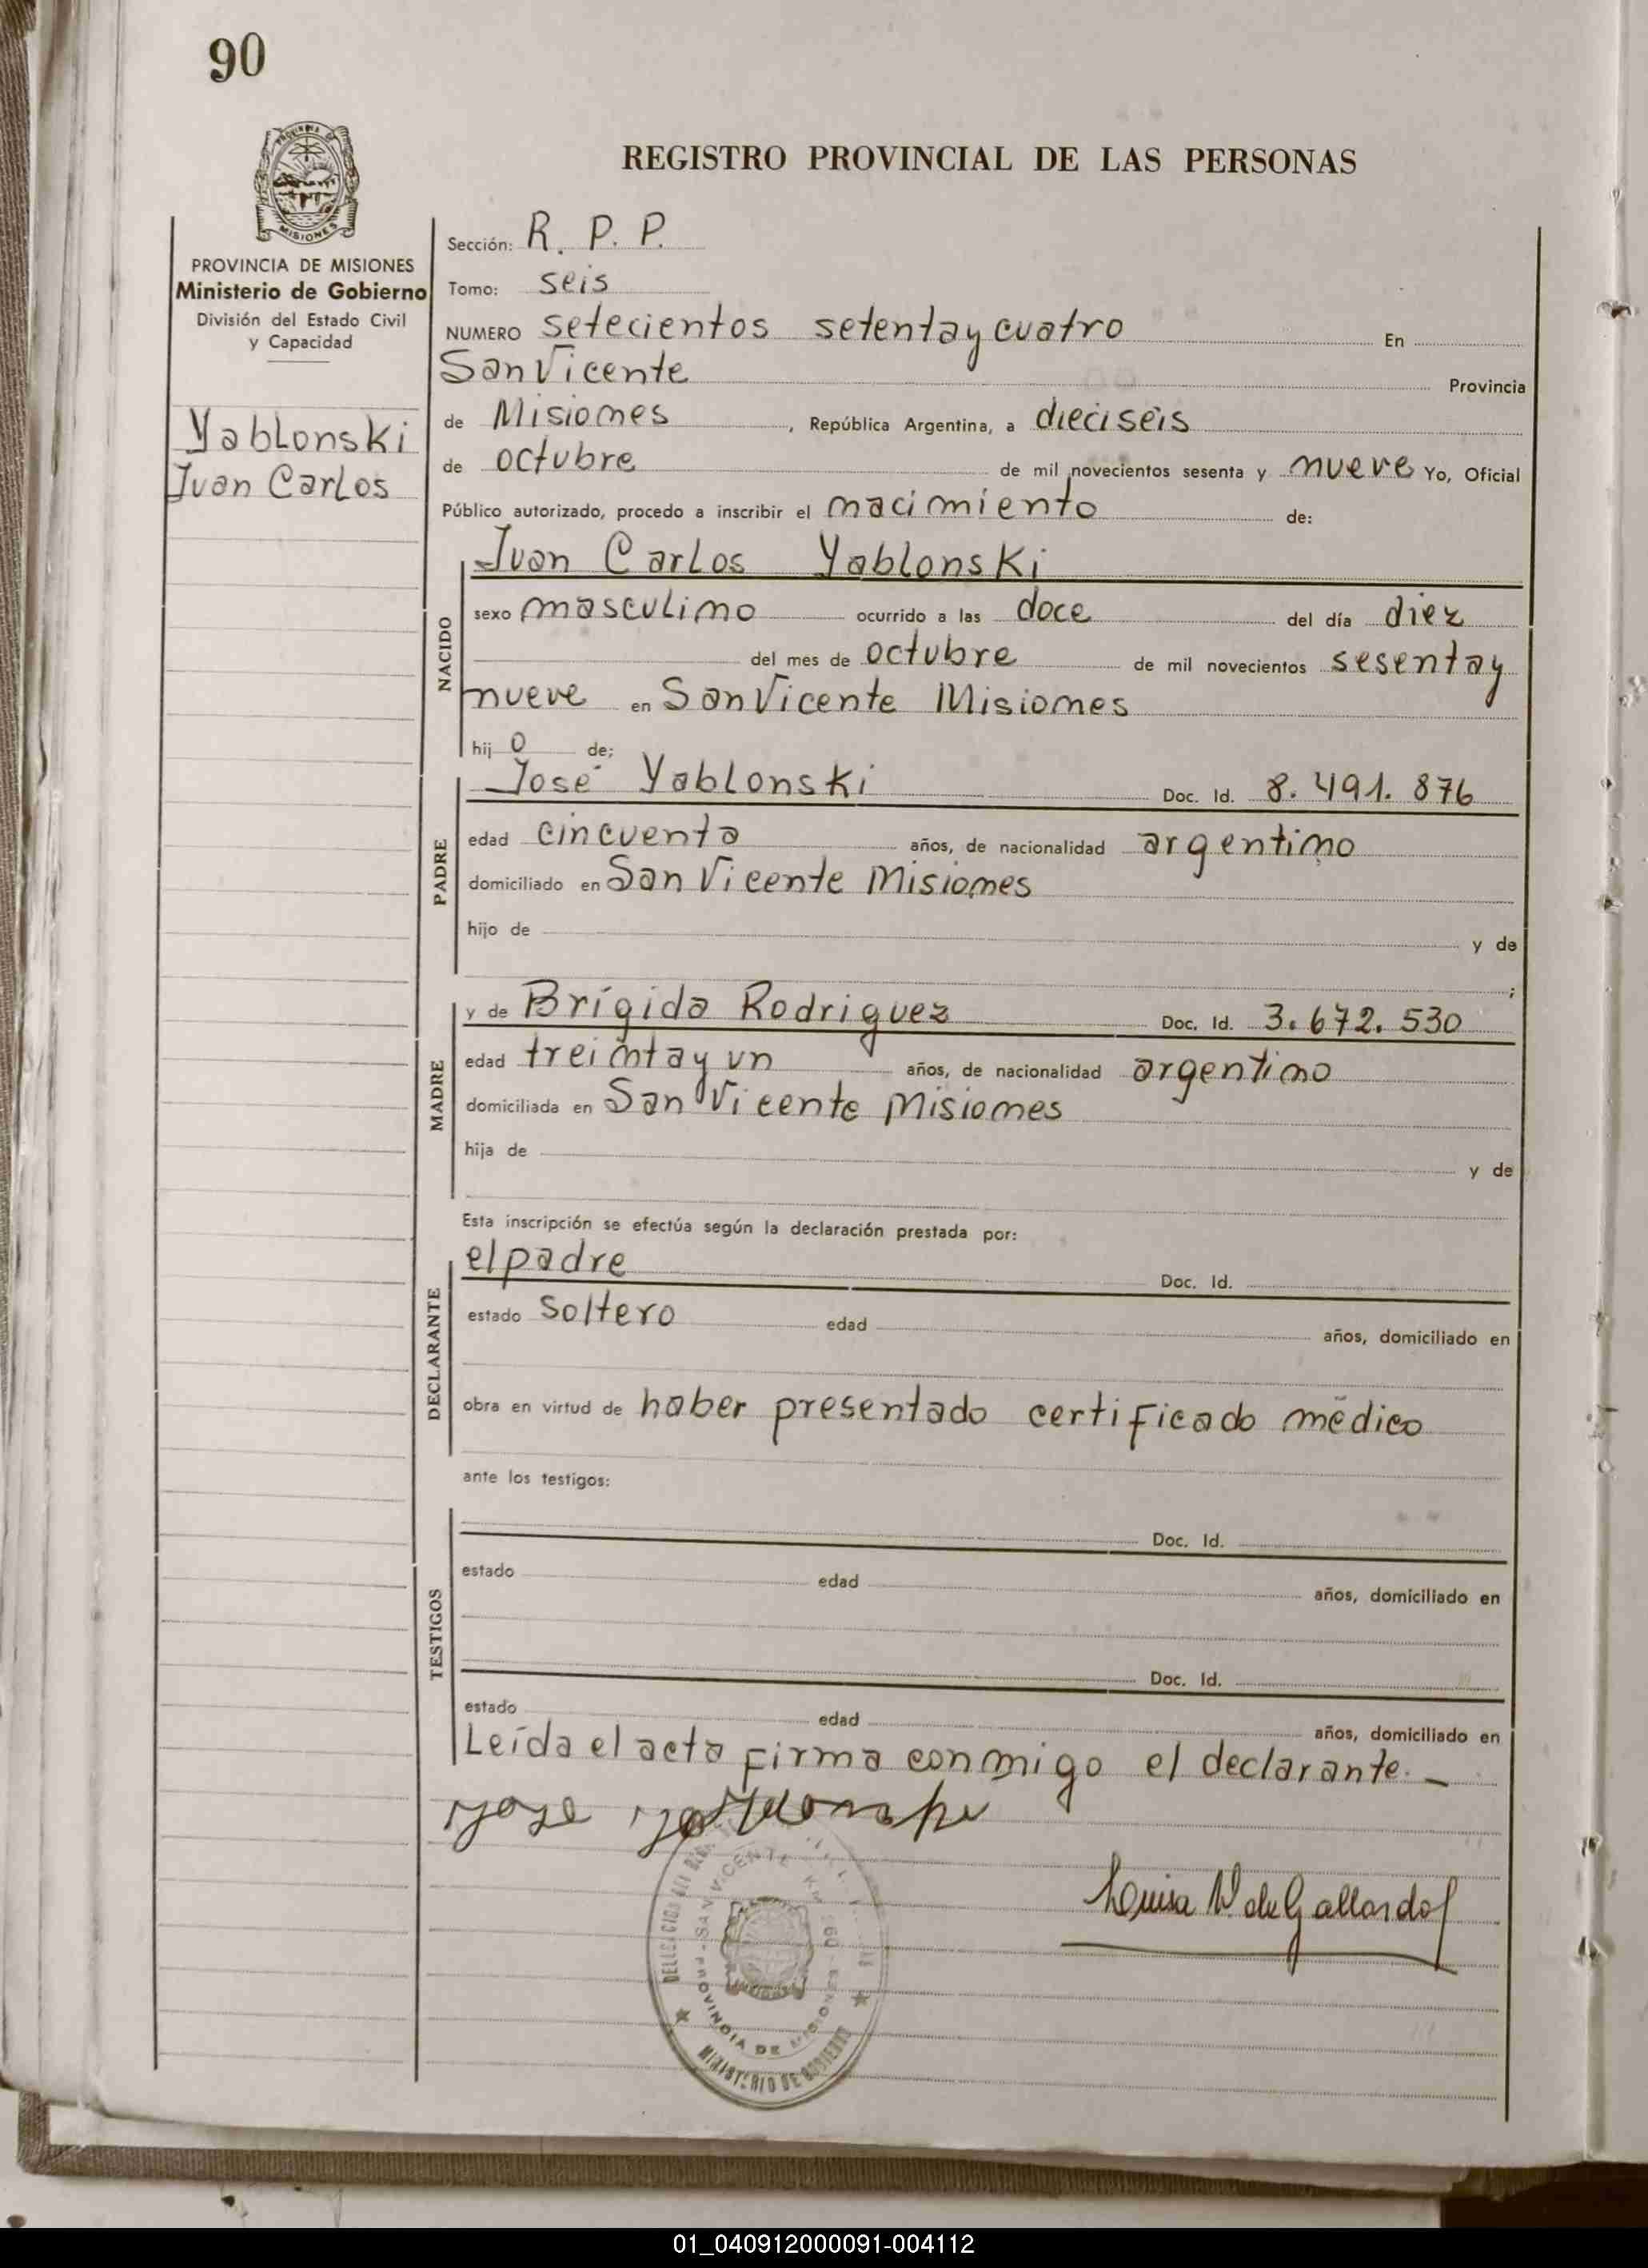 90
REGISTRO PROVINCIAL DE LAS PERSONAS
PROVINCIA DE MISIONES
Ministerio de Gobierno
División del Estado Civil
y Capacidad
Yablonski
Juan Carlos
Sección: R. P. P.
Tomo: seis
NUMERO setecientos setenta y cuatro En
San Vicente Provincia
de Misiones, República Argentina, a dieciséis
de octubre de mil novecientos sesenta y nueve Yo, Oficial
Público autorizado, procedo a inscribir el nacimiento de:
Juan Carlos Yablonski
NACIDO
sexo masculino ocurrido a las doce del día diez
del mes de octubre de mil novecientos sesenta y
nueve en San Vicente Misiones
hij o de;
PADRE
José Yablonski Doc. Id. 8.491.876
edad cincuenta años, de nacionalidad argentino
domiciliado en San Vicente Misiones
hijo de y de
;
MADRE
y de Brígida Rodriguez Doc. Id. 3.672.530
edad treinta y un años, de nacionalidad argentino
domiciliada en San Vicente Misiones
hija de y de
Esta inscripción se efectúa según la declaración prestada por:
DECLARANTE
el padre Doc. Id.
estado soltero edad años, domiciliado en
obra en virtud de haber presentado certificado médico
ante los testigos:
TESTIGOS
Doc. Id.
estado edad años, domiciliado en
Doc. Id.
estado edad años, domiciliado en
Leída el acta firma conmigo el declarante. —
Luisa V. de Gallardo
SAN VICENTE
PROVINCIA DE MISIONES
MINISTERIO DE GOBIERNO
01_040912000091-004112